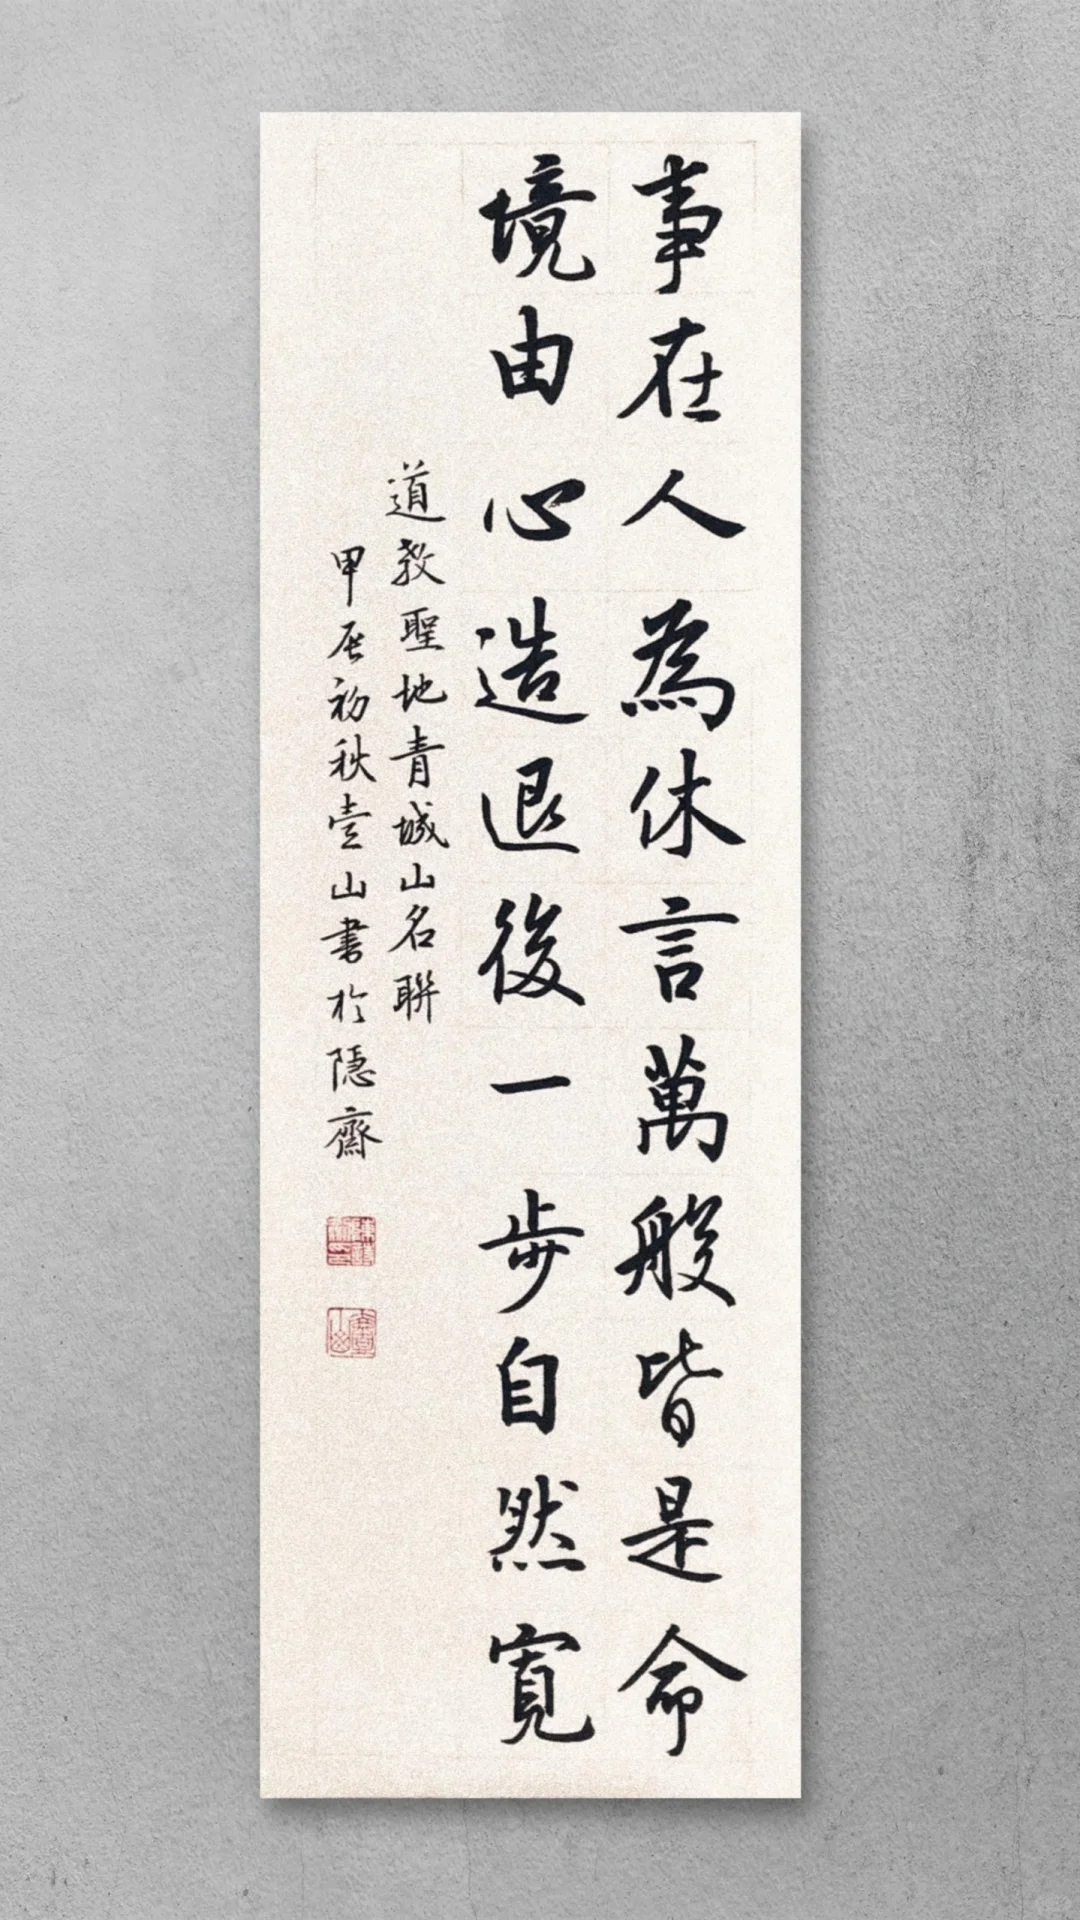 事在人為休言萬般皆是命
境由心造退後一步自然寬
道教聖地青城山名聯
甲辰初秋壹山書於隱齋